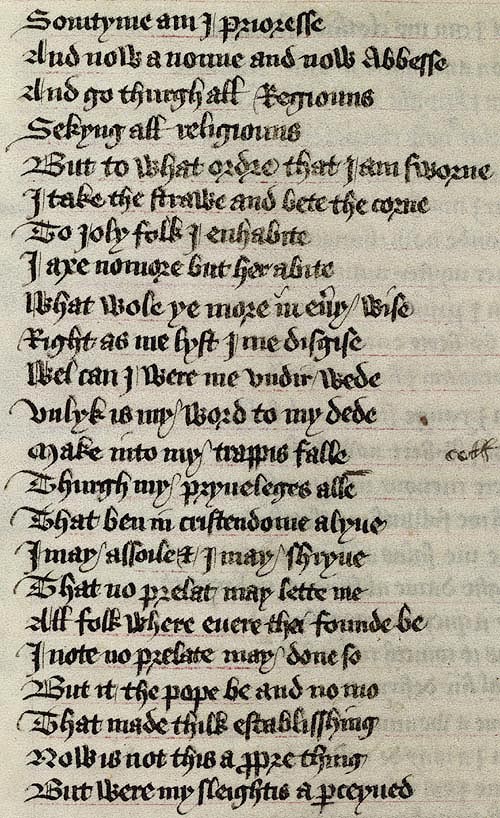 Somtyme am I prioresse
And now a nonne and now Abbesse
And go thurgh all Regiouns
Sekyng all religiouns
But to what ordre that I am sworne
I take the strawe and bete the corne
To Joly folk I enhabite
I axe nomore but her abite
What wole ye more in eu'y wise
Right as me lyst I me disgise
Wel can I were me vndir wede
Vnlyk is my word to my dede
Make into my trappis falle
Thurgh my pryueleges alle
That ben in cristendome alyue
I may assoile & I may shryue
That no prelat may lette me
All folk where euere thei founde be
I note no prelate may done so
But it the pope be and no mo
That made thilk establisshing
Now is not this a ppre thing
But were my sleightis a pceyued